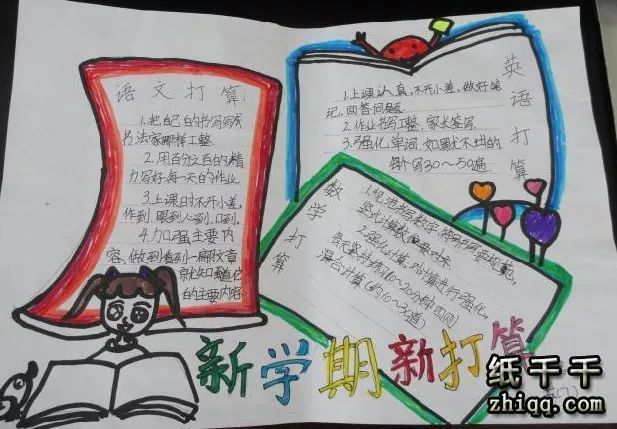 语文打算
1.把自己的书写写得像
书法家那样工整
2.用百分之百的精
力写好每一天的作业
3.上课时不开小差,
作到眼到心到、口到.
4.加强主要内
容,做到看到一篇文章
就知道它
的主要内容
英语打算
1.上课认真,不开小差,做好笔
记,回答问题
2.作业书写工整,家长签写
3.强化单词,如默不出的
每个写30~50遍
数学打算
1.规范书写数字
2.强化计算,对计算进行强化,
每天坚持练10~20分钟时间
混合计算(约10~30道)
新学期新打算
纸千千
zhiqq.com